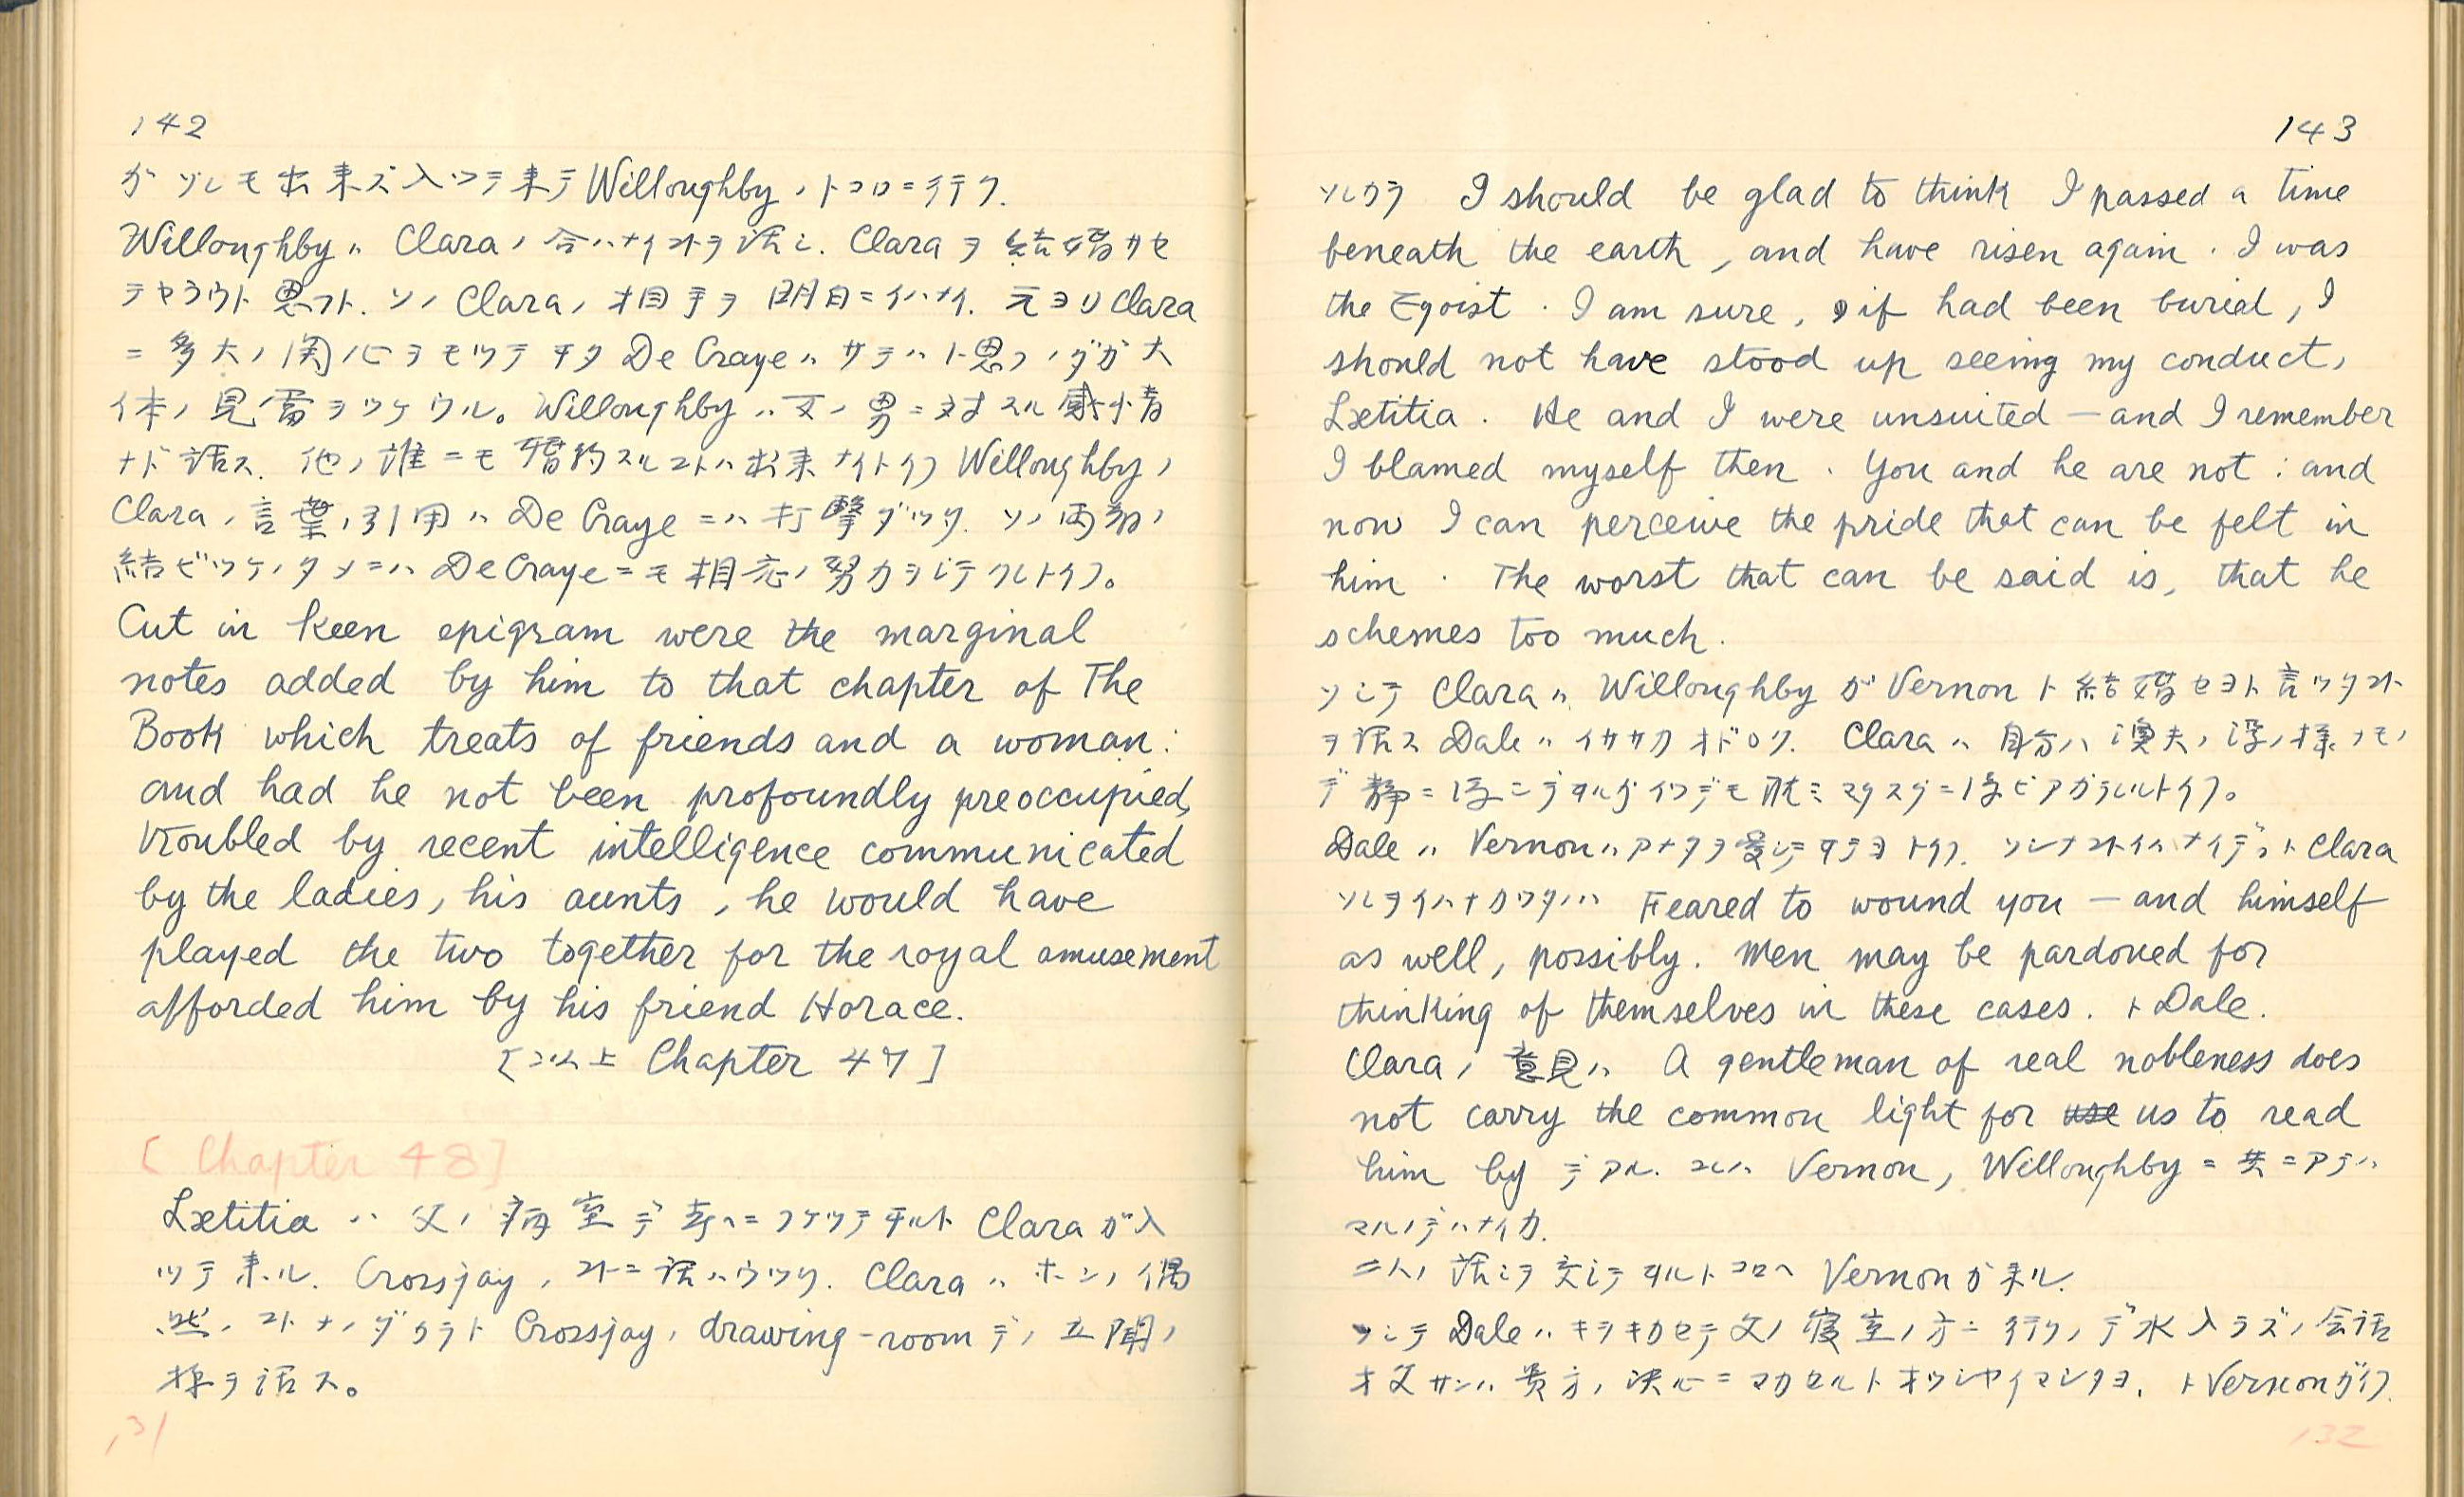 142
ガソレモ出来ズ入ツテ来テWilloughbyノトコロニ行テク.
Willoughbyハ Claraノ合ハナイコトヲ話シ. Claraヲ結婚サセ
テヤラウト思フト. ソノClaraノ相手ヲ明白ニイハナイ. 元ヨリClara
ニ多大ノ関心ヲモツテヰタ De Crayeハサテハト思フノダガ大
体ノ見当ヲツケウル。Willoughbyハ女ノ男ニ対スル感情
ナド話ス. 他ノ誰ニモ婚約スルコトハ出来ナイトイフWilloughbyノ
Claraノ言葉ノ引用ハ De Crayeニハ打撃ダツタ. ソノ両者ノ
結ビツケノタメニハ De Crayeニモ相応ノ努力ヲシテクレトイフ。
Cut in keen epigram were the marginal
notes added by him to that chapter of The
Book which treats of friends and a woman:
and had he not been profoundly preoccupied,
troubled by recent intelligence communicated
by the ladies, his aunts, he would have
played the two together for the royal amusement
afforded him by his friend Horace.
[以上 Chapter 47]
[Chapter 48]
Lætitiaハ父ノ病室デ考ヘニフケツテヰルト Claraガ入
ツテ来ル. Crossjayノコトニ話ハウツル. Claraハホンノ偶
然ノコトナノダカラト Crossjayノdrawing-roomデノ立聞ノ
様ヲ話ス。
131
143
ソレカラ I should be glad to think I passed a time
beneath the earth, and have risen again. I was
the Egoist. I am sure, if had been buried, I
should not have stood up seeing my conduct,
Lætitia. He and I were unsuited — and I remember
I blamed myself then. You and he are not: and
now I can perceive the pride that can be felt in
him. The worst that can be said is, that he
schemes too much.
ソシテ Claraハ WilloughbyガVernonト結婚セヨト言ツタコト
ヲ話ス Daleハイササカオドロク. Claraハ自分ハ漁夫ノ浮ノ様ノモノ
デ静ニ浮ンデヰルガイツデモ沈ミマタスグニ浮ビアガラレルトイフ。
Daleハ Vernonハアナタヲ愛シテヰテヨトイフ. ソンナコトイハナイデ、トClara
ソレヲイハナカツタノハ Feared to wound you — and himself
as well, possibly. Men may be pardoned for
thinking of themselves in these cases. トDale.
Claraノ意見ハ A gentleman of real nobleness does
not carry the common light for us to read
him by デアル. コレハ Vernon, Willoughbyニ共ニアテハ
マルノデハナイカ.
二人ノ話シヲ交シテヰルトコロヘ Vernonガ来ル.
ソシテ Daleハキヲキカセテ父ノ寝室ノ方ニ行ク, デ水入ラズノ会話
オ父サンハ貴方ノ決心ニマカセルトオツシヤイマシタヨ. トVernonガイフ.
132